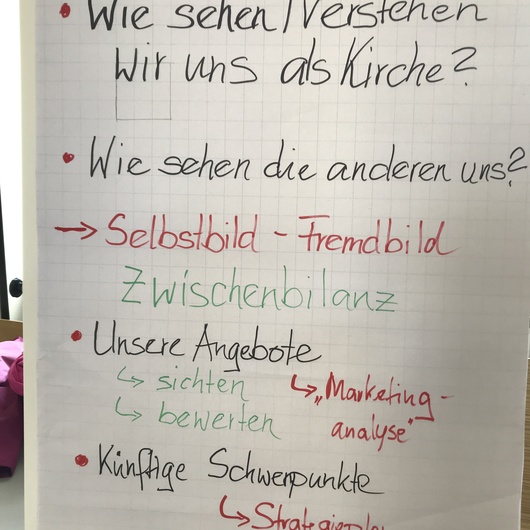 • Wie sehen / Verstehen
Wir uns als Kirche?
• Wie sehen die anderen uns?
→ Selbstbild - Fremdbild
Zwischenbilanz
• Unsere Angebote
↳ sichten ↳ „Marketing-
↳ bewerten analyse"
• Künftige Schwerpunkte